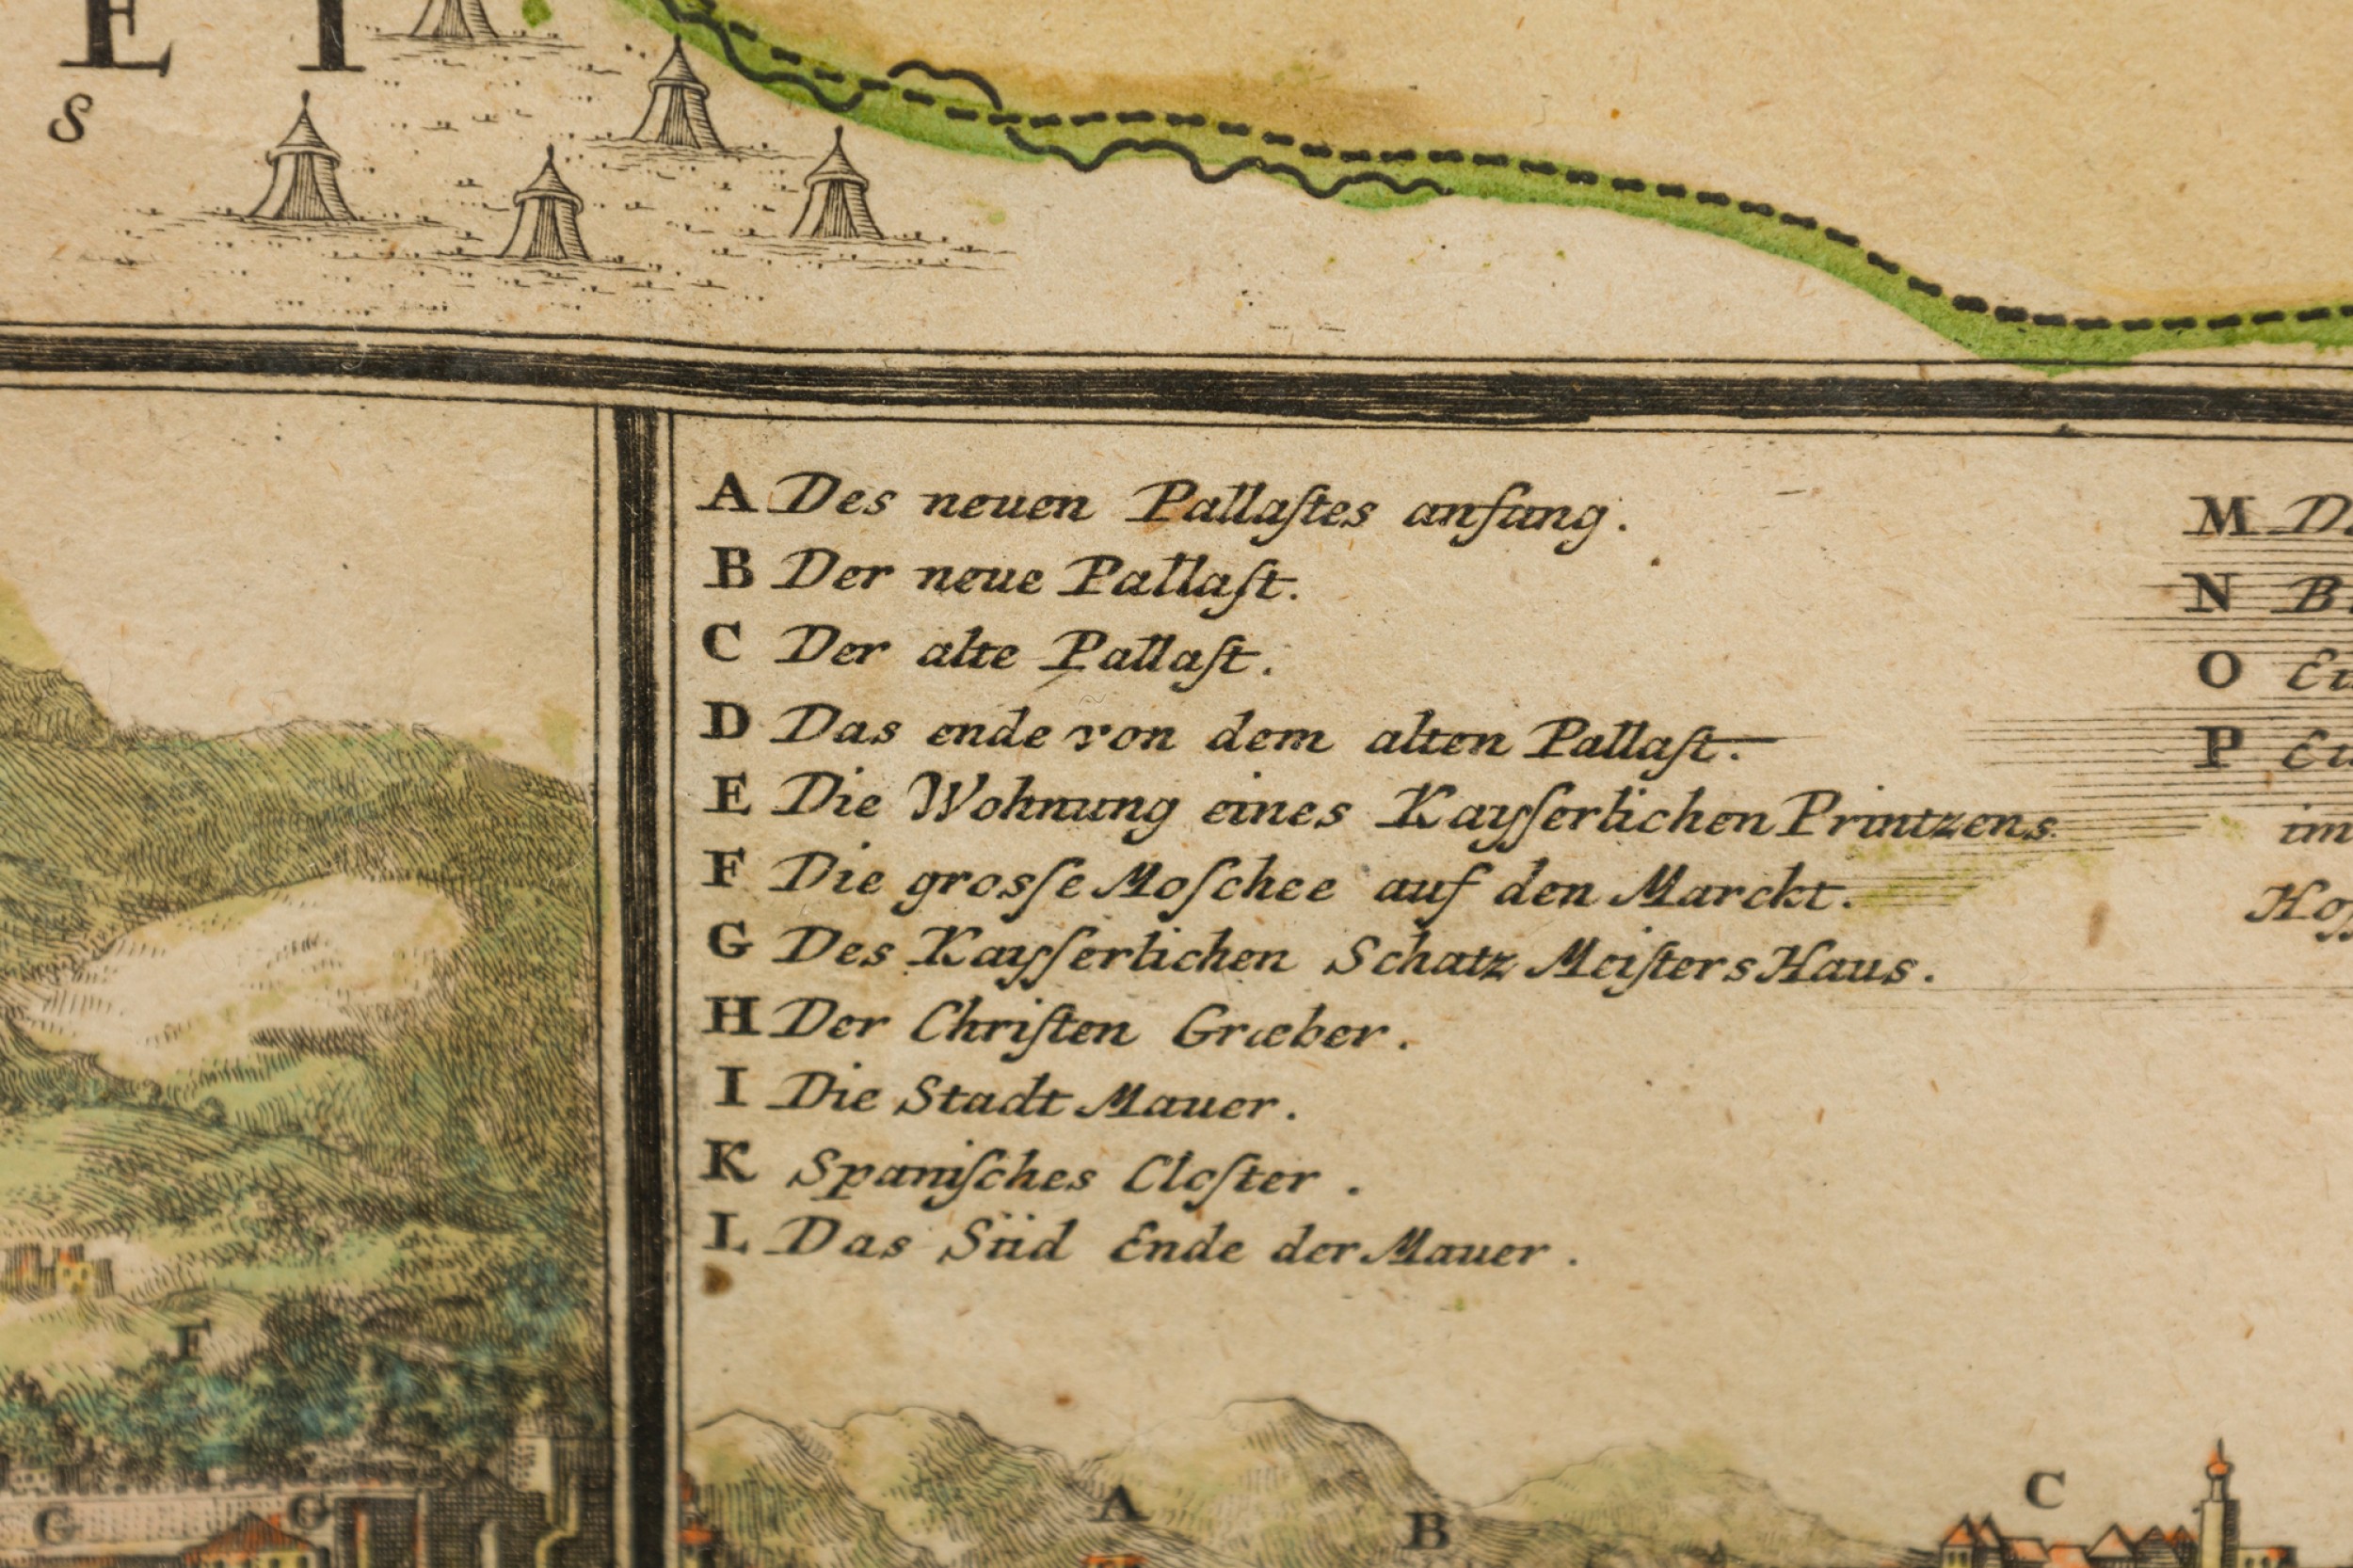 E I
S
A Des neuen Pallaſtes anfang.
B Der neue Pallaſt.
C Der alte Pallaſt.
D Das ende von dem alten Pallaſt.
E Die Wohnung eines Kayſerlichen Printzens.
F Die grosſe Moſchee auf den Marckt.
G Des Kayſerlichen Schatz Meiſters Haus.
H Der Chriſten Græber.
I Die Stadt Mauer.
K Spaniſches Cloſter.
L Das Süd Ende der Mauer.
M
N
O
P
im
F
G G
A B C